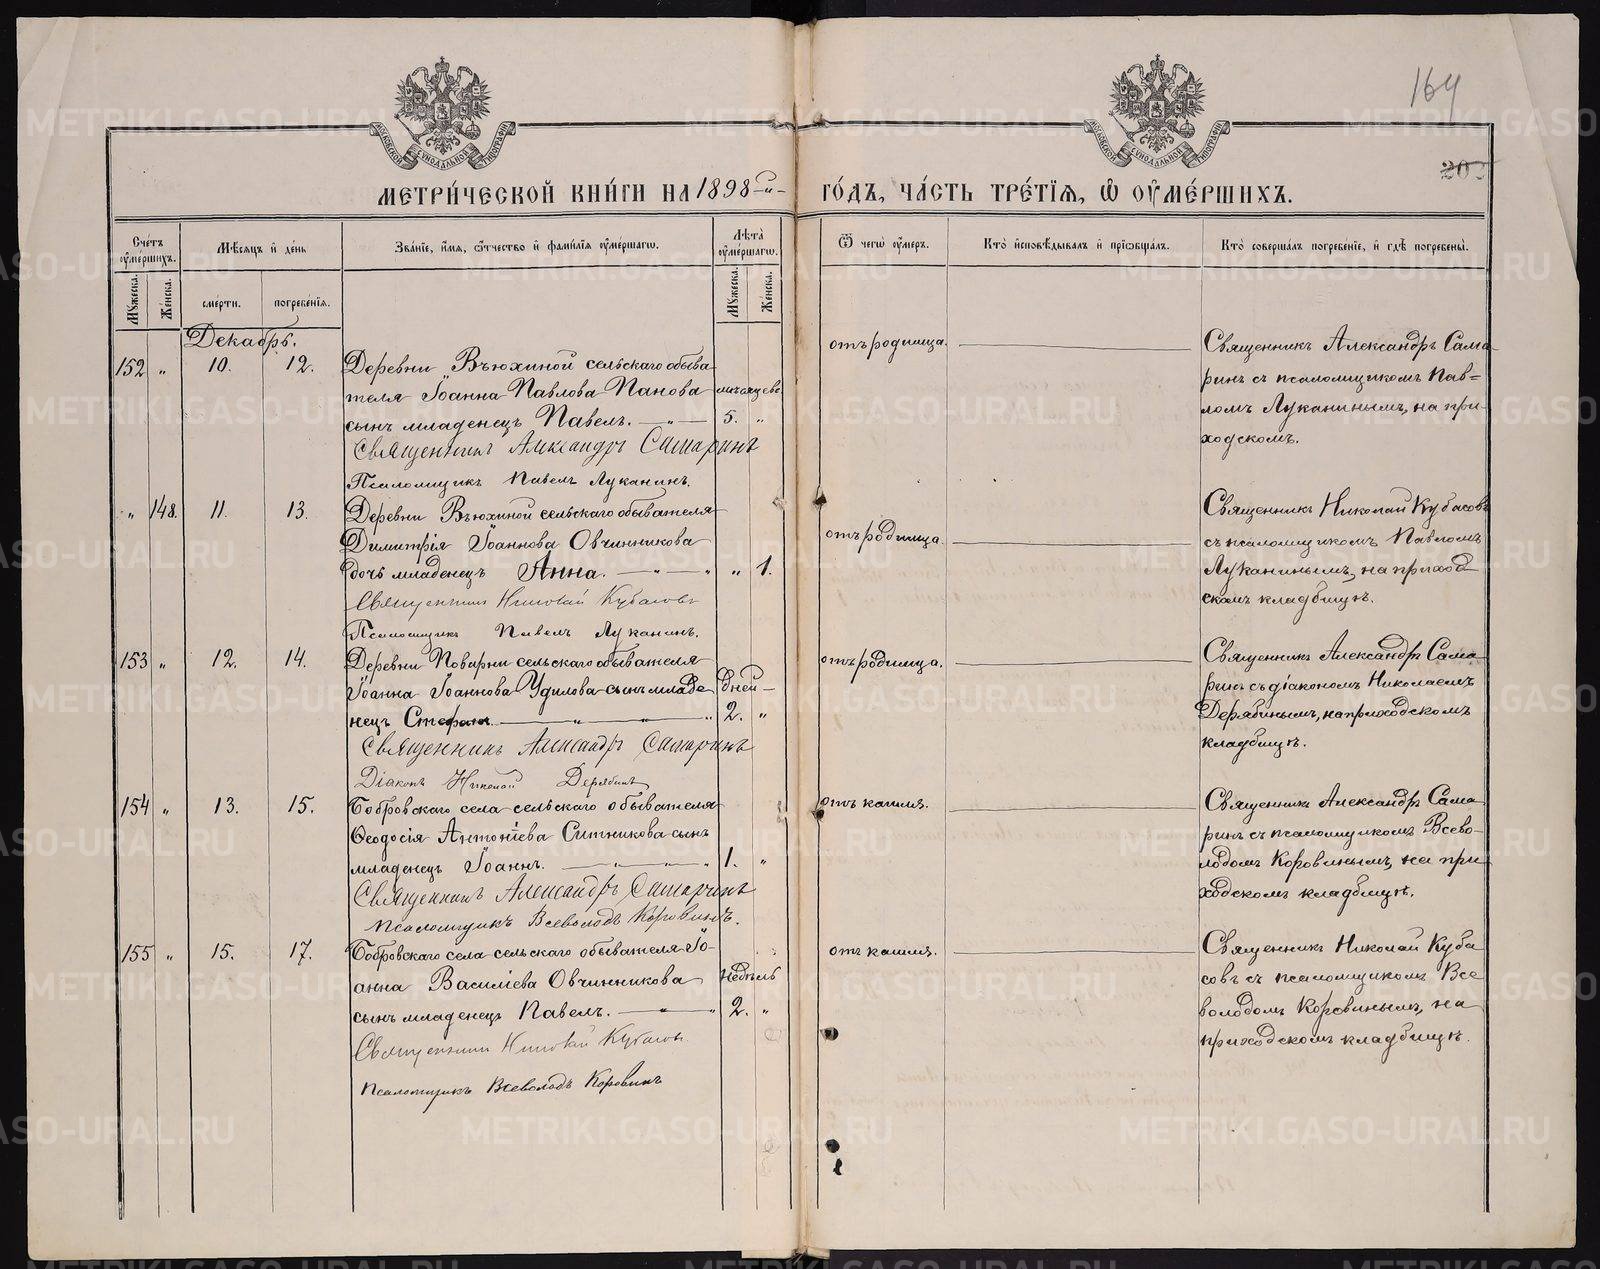 164
203
МОСКОВСКОЙ СѴНОДАЛЬНОЙ ТИПОГРАФІИ
МОСКОВСКОЙ СѴНОДАЛЬНОЙ ТИПОГРАФІИ
МЕТРИ́ЧЕСКОЙ КНИ́ГИ НА 1898-й ГО́ДЪ, ЧА́СТЬ ТРЕ́ТЇѦ, Ѿ ОУМЕ́РШИХЪ.
Сче́тъ оуме́ршихъ.
Мꙋжеска. Же́нска.
Мѣ́сѧцъ и҆ де́нь
сме́рти. погребе́нїѧ.
Зва́нїе, и҆́мѧ, ѻ҆́тчество и҆ фами́лїѧ оуме́ршагѡ.
Лѣта̀ оуме́ршагѡ.
Мꙋжеска. Же́нска.
Ѿ чегѡ̀ оу́меръ.
Кто̀ и҆сповѣ́дывалъ и҆ прїѡбща́лъ.
Кто̀ соверша́лъ погребе́нїе, и҆ гдѣ̀ погребены̀.
Декабрь.
152 " 10. 12. Деревни Вьюхиной сельскаго обыва-
теля Іоанна Павлова Панова мѣсяцевъ
сынъ младенецъ Павелъ. — " — 5. "
Священникъ Александръ Самаринъ
Псаломщикъ Павелъ Луканинъ.
отъ родимца.
Священникъ Александръ Сама-
ринъ съ псаломщикомъ Пав-
ломъ Луканинымъ, на при-
ходскомъ.
" 148. 11. 13. Деревни Вьюхиной сельскаго обывателя
Димитрія Іоаннова Овчинникова
дочь младенецъ Анна. — " — " " 1.
Священникъ Николай Кубасовъ
Псаломщикъ Павелъ Луканинъ.
отъ родимца.
Священникъ Николай Кубасовъ
съ псаломщикомъ Павломъ
Луканинымъ, на приход-
скомъ кладбищѣ.
153 " 12. 14. Деревни Поварни сельскаго обывателя
Іоанна Іоаннова Удилова сынъ младе- дней
нецъ Стефанъ. — " — " — " 2. "
Священникъ Александръ Самаринъ
Діаконъ Николай Дерябинъ
отъ родимца.
Священникъ Александръ Сама-
ринъ съ діакономъ Николаемъ
Дерябинымъ, на приходскомъ
кладбищѣ.
154 " 13. 15. Бобровскаго села сельскаго обывателя
Ѳеодосія Антоніева Ситникова сынъ
младенецъ Іоаннъ. — " — " — " 1. "
Священникъ Александръ Самаринъ
Псаломщикъ Всеволодъ Коровинъ.
отъ кашля.
Священникъ Александръ Сама-
ринъ съ псаломщикомъ Всево-
лодомъ Коровинымъ, на при-
ходскомъ кладбищѣ.
155 " 15. 17. Бобровскаго села сельскаго обывателя Іо-
анна Василіева Овчинникова недѣль
сынъ младенецъ Павелъ. — " — " 2. "
Священникъ Николай Кубасовъ
Псаломщикъ Всеволодъ Коровинъ
отъ кашля.
Священникъ Николай Куба-
совъ съ псаломщикомъ Все-
володомъ Коровинымъ, на
приходскомъ кладбищѣ.
METRIKI.GASO-URAL.RU